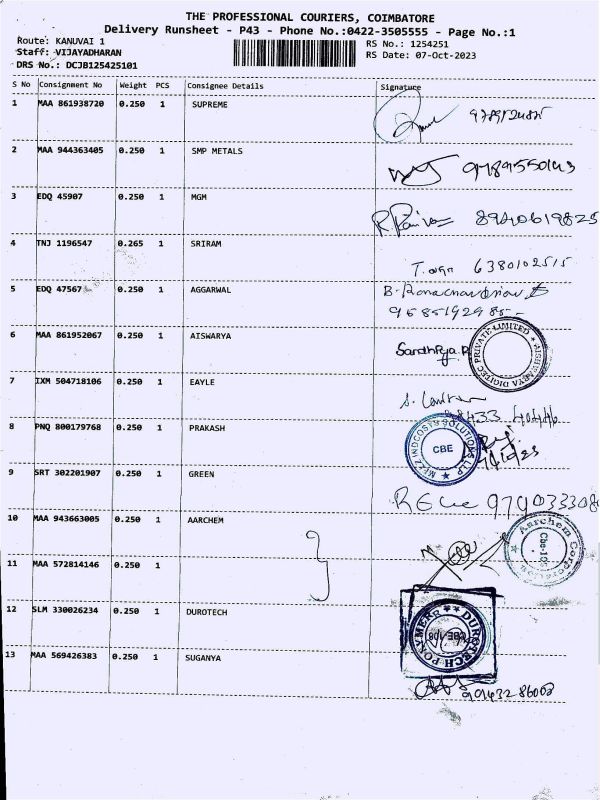 THE PROFESSIONAL COURIERS, COIMBATORE
Delivery Runsheet - P43 - Phone No.:0422-3505555 - Page No.:1
Route: KANUVAI 1
RS No.: 1254251
Staff: VIJAYADHARAN
RS Date: 07-Oct-2023
DRS No.: DCJB125425101
S No Consignment No Weight PCS Consignee Details Signature
1 MAA 861938720 0.250 1 SUPREME
2 MAA 944363405 0.250 1 SMP METALS
3 EDQ 45907 0.250 1 MGM
8940619825
4 TNJ 1196547 0.265 1 SRIRAM
6380102515
5 EDQ 47567 0.250 1 AGGARWAL
9685192985
6 MAA 861952067 0.250 1 AISWARYA
Sandhiya.P
AISHWARYA DIGITEC PRIVATE LIMITED
7 IXM 504718106 0.250 1 EAYLE
8 PNQ 800179768 0.250 1 PRAKASH
INDCOSYS SOLUTIONS LLP
CBE
9 SRT 302201907 0.250 1 GREEN
10 MAA 943663005 0.250 1 AARCHEM
Aarchem Corporation
11 MAA 572814146 0.250 1
12 SLM 330026234 0.250 1 DUROTECH
DUROTECH POLYMERR
13 MAA 569426383 0.250 1 SUGANYA